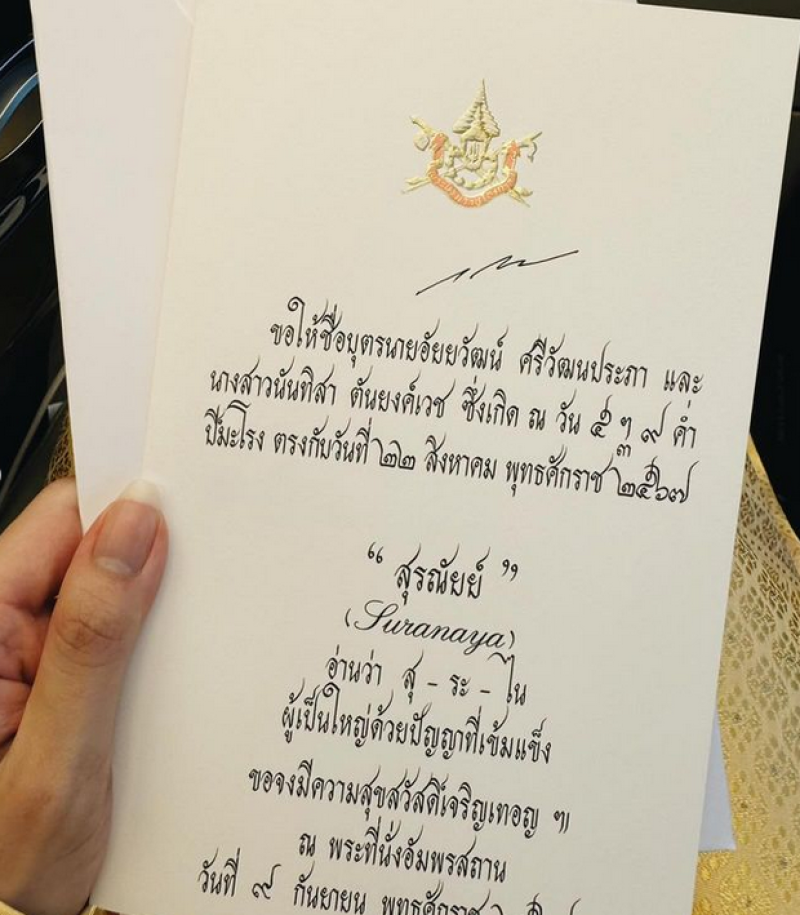 ขอให้ชื่อบุตรนายอัยยวัฒน์ ศรีวัฒนประภา และ
นางสาวนันทิสา ตันยงค์เวช ซึ่งเกิด ณ วัน ๕ ฯ ๙ ค่ำ
ปีมะโรง ตรงกับวันที่ ๒๒ สิงหาคม พุทธศักราช ๒๕๖๗
“ สุรณัยย์ ”
(Suranaya)
อ่านว่า สุ - ระ - ไน
ผู้เป็นใหญ่ด้วยปัญญาที่เข้มแข็ง
ขอจงมีความสุขสวัสดิ์เจริญเทอญ ฯ
ณ พระที่นั่งอัมพรสถาน
วันที่ ๙ กันยายน พุทธศักราช